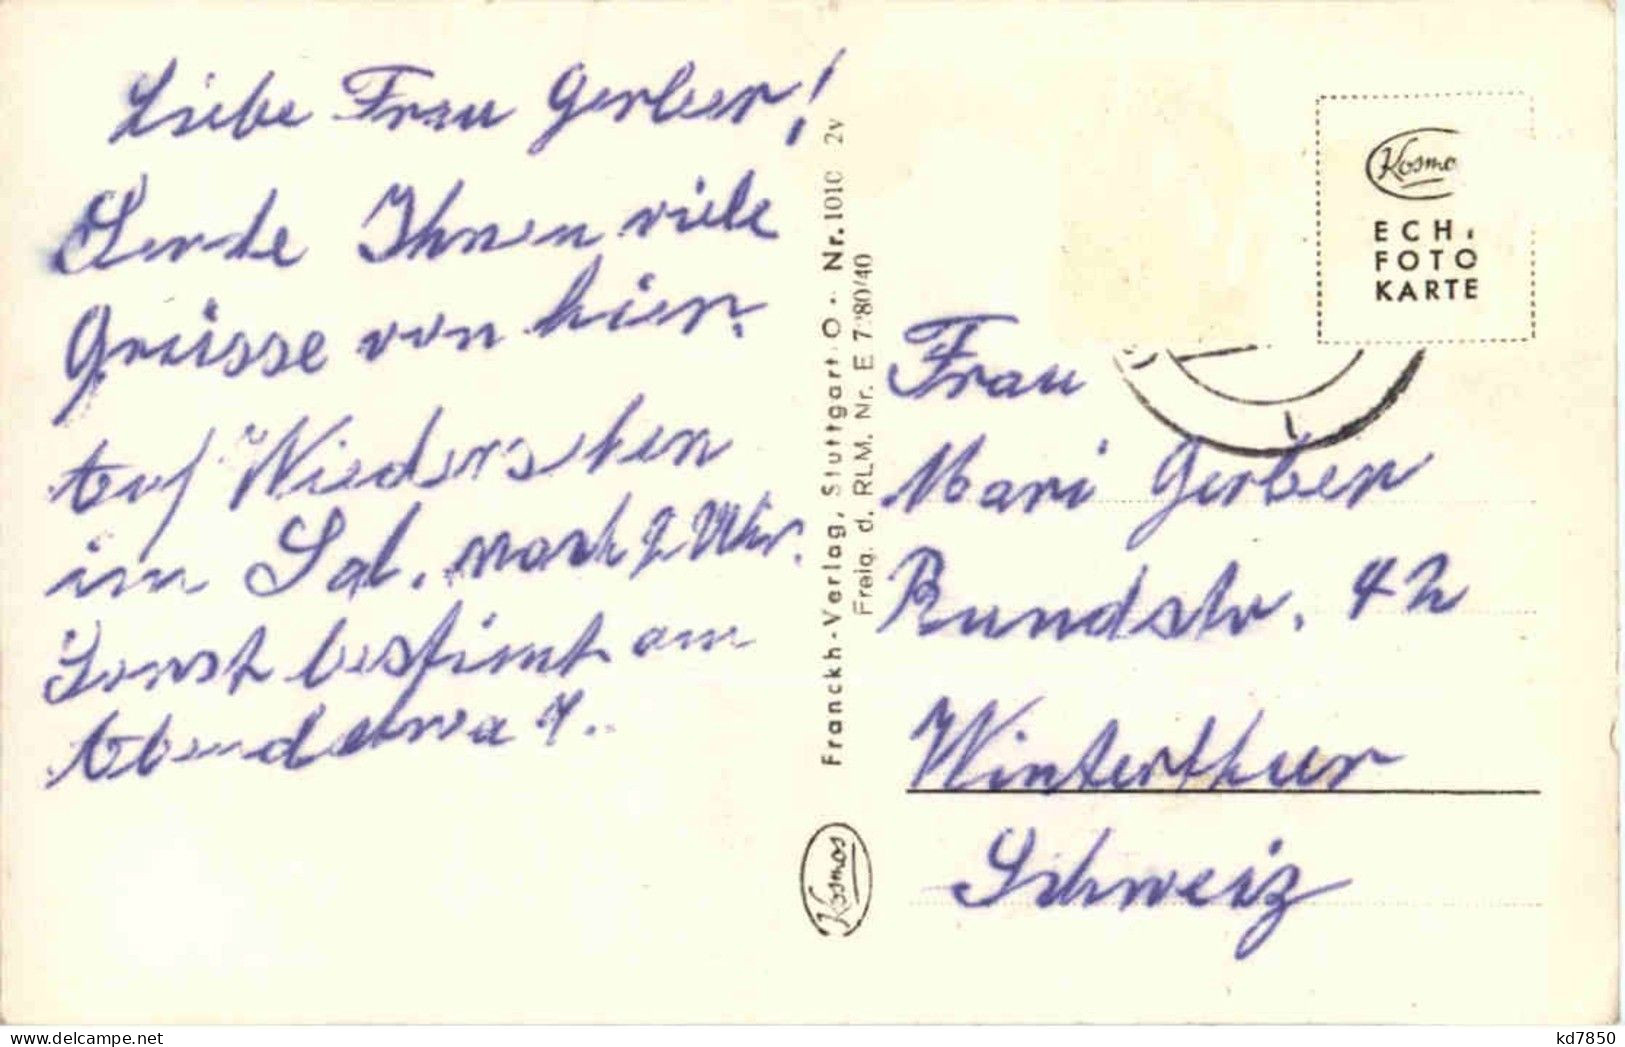 Liebe Frau Gerber!
Sende Ihnen viele
Grüsse von hier.
Auf Wiedersehen
im Sal. nach 2 Uhr.
Sonst bestimt am
Abend etwa 7.
Franckh-Verlag, Stuttgart-O · Nr. 1010 2v
Freig. d. RLM. Nr. E 7280/40
Kosmos
Kosmo
ECH
FOTO
KARTE
Frau
Mari Gerber
Rundstr. 42
Winterthur
Schweiz
kd7850